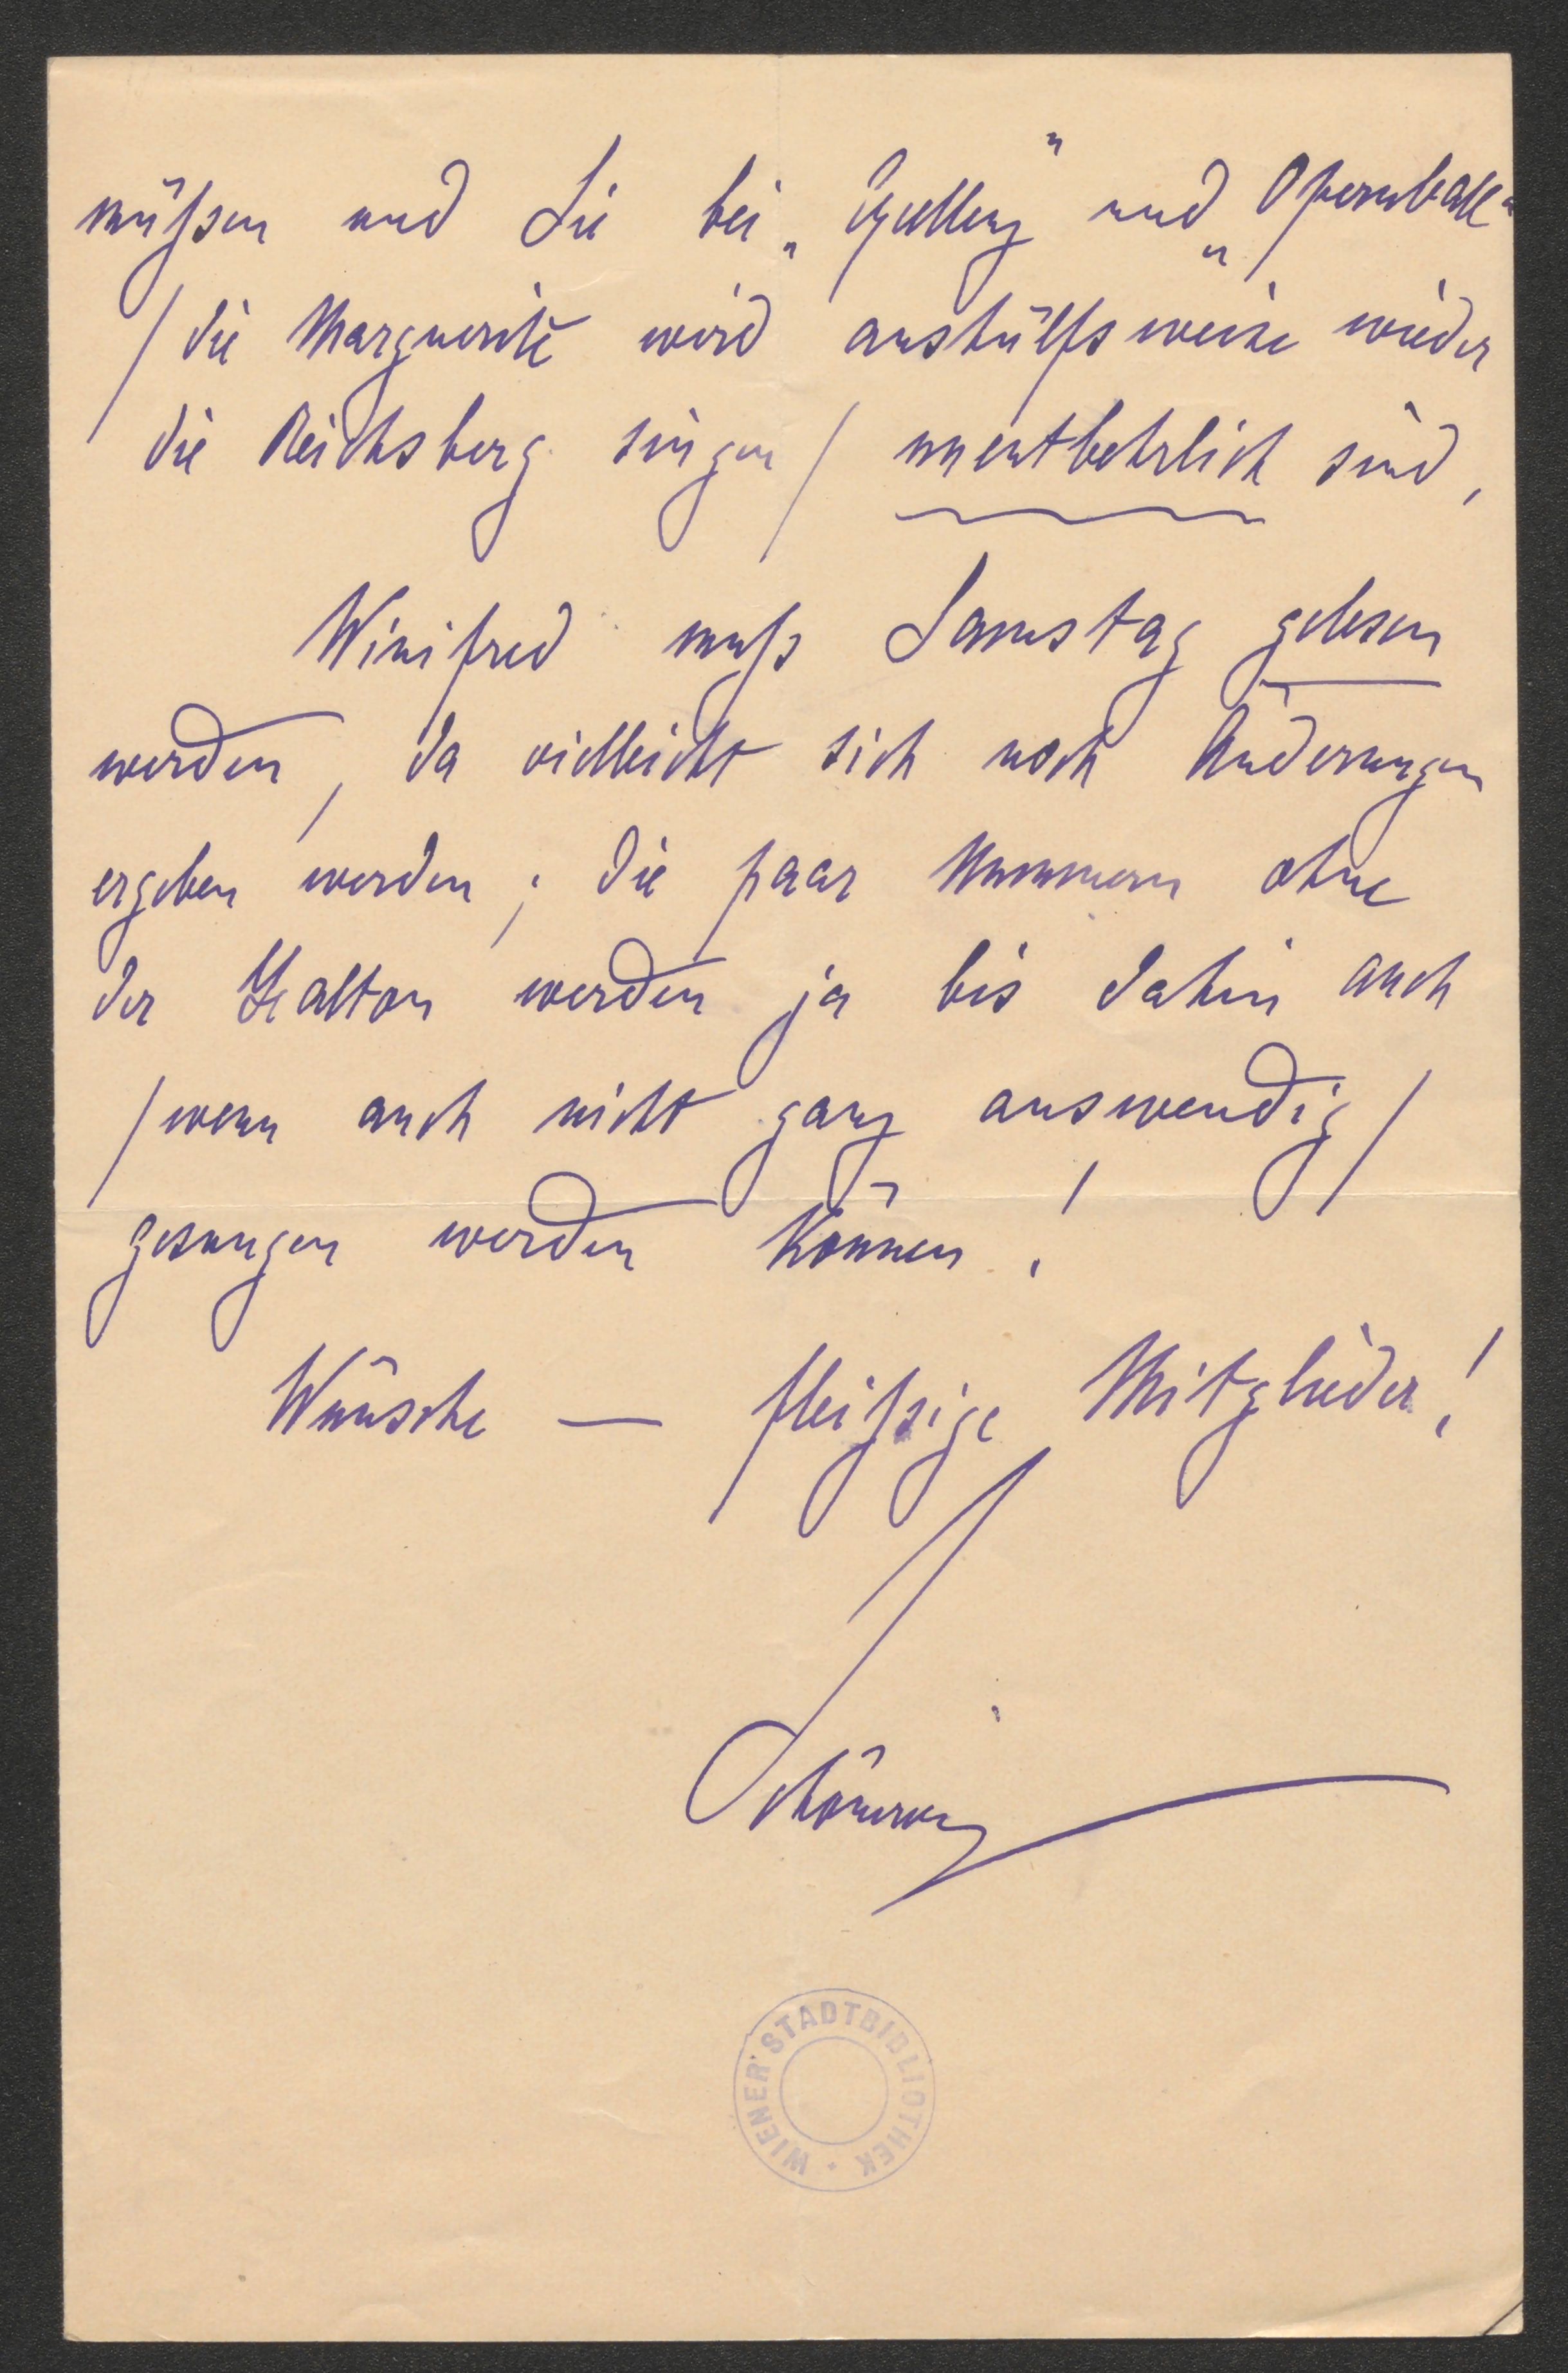 müßen und Sie bei „Excellenz“ und „Opernball“
/ die Marguerite wird aushülfsweise wieder
die Reichsberg singen / unentbehrlich sind,
Winifred muß Samstag gelesen
werden, da vielleicht sich noch Änderungen
ergeben werden; die paar Nummern ohne
der Halton werden ja bis dahin auch
/ wenn auch nicht ganz auswendig /
gesungen werden können!
Wünsche — fleißige Mitglieder!
WIENER STADTBIBLIOTHEK